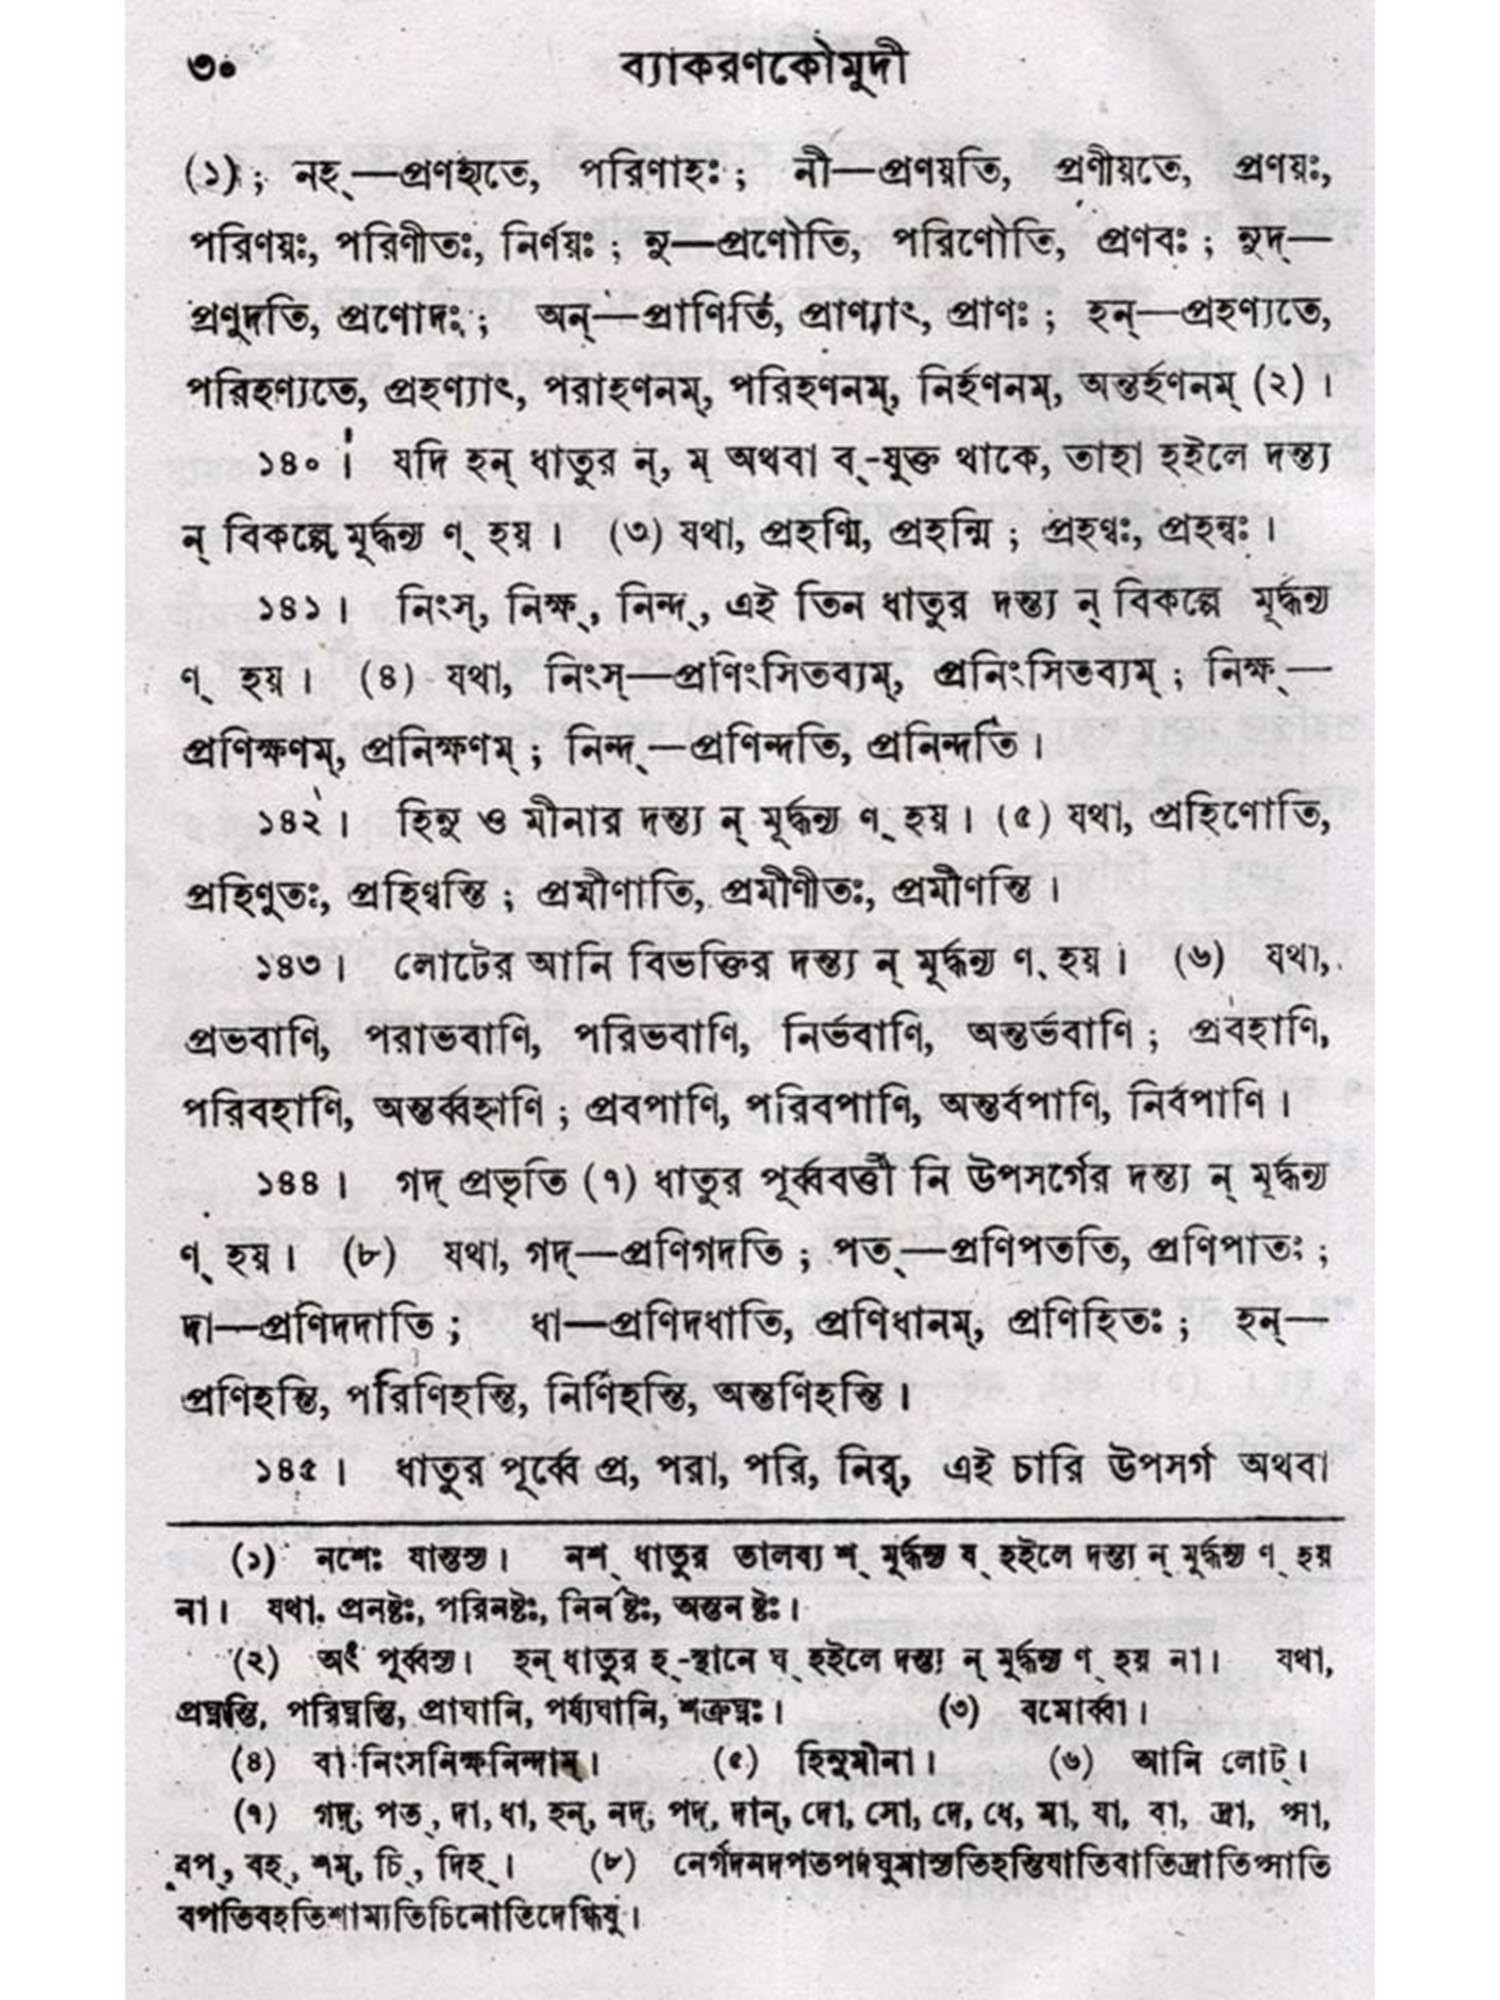 ৩০ ব্যাকরণকৌমুদী
(১); নহ্—প্রণহ্যতে, পরিণাহঃ; নী—প্রণয়তি, প্রণীয়তে, প্রণয়ঃ,
পরিণয়ঃ, পরিণীতঃ, নির্ণয়ঃ; নু—প্রণৌতি, পরিণৌতি, প্রণবঃ; নুদ্—
প্রণুদতি, প্রণোদঃ; অন্—প্রাণিতি, প্রাণ্যাৎ, প্রাণঃ; হন্—প্রহণ্যতে,
পরিহণ্যতে, প্রহণ্যাৎ, পরাহণনম্, পরিহণনম্, নির্হণনম্, অন্তর্হণনম্ (২)।
১৪০। যদি হন্ ধাতুর ন্, ম্ অথবা ব্-যুক্ত থাকে, তাহা হইলে দন্ত্য
ন্ বিকল্পে মূর্দ্ধন্য ণ্ হয়। (৩) যথা, প্রহণ্মি, প্রহন্মি; প্রহণ্বঃ, প্রহন্বঃ।
১৪১। নিংস্, নিক্ষ্, নিন্দ্, এই তিন ধাতুর দন্ত্য ন্ বিকল্পে মূর্দ্ধন্য
ণ্ হয়। (৪) যথা, নিংস্—প্রণিংসিতব্যম্, প্রনিংসিতব্যম্; নিক্ষ্—
প্রণিক্ষণম্, প্রনিক্ষণম্; নিন্দ্—প্রণিন্দতি, প্রনিন্দতি।
১৪২। হিনু ও মীনার দন্ত্য ন্ মূর্দ্ধন্য ণ্ হয়। (৫) যথা, প্রহিণোতি,
প্রহিণুতঃ, প্রহিণ্বন্তি; প্রমীণাতি, প্রমীণীতঃ, প্রমীণন্তি।
১৪৩। লোটের আনি বিভক্তির দন্ত্য ন্ মূর্দ্ধন্য ণ্ হয়। (৬) যথা,
প্রভবাণি, পরাভবাণি, পরিভবাণি, নির্ভবাণি, অন্তর্ভবাণি; প্রবহাণি,
পরিবহাণি, অন্তর্ব্বহাণি; প্রবপাণি, পরিবপাণি, অন্তর্বপাণি, নির্বপাণি।
১৪৪। গদ্ প্রভৃতি (৭) ধাতুর পূর্ব্ববর্ত্তী নি উপসর্গের দন্ত্য ন্ মূর্দ্ধন্য
ণ্ হয়। (৮) যথা, গদ্—প্রণিগদতি; পত্—প্রণিপততি, প্রণিপাতঃ;
দা—প্রণিদদাতি; ধা—প্রণিদধাতি, প্রণিধানম্, প্রণিহিতঃ; হন্—
প্রণিহন্তি, পরিণিহন্তি, নির্ণিহন্তি, অন্তর্ণিহন্তি।
১৪৫। ধাতুর পূর্ব্বে প্র, পরা, পরি, নির্, এই চারি উপসর্গ অথবা
(১) নশেঃ ষান্তস্য। নশ্ ধাতুর তালব্য শ্ মূর্দ্ধন্য ষ্ হইলে দন্ত্য ন্ মূর্দ্ধন্য ণ্ হয়
না। যথা. প্রনষ্টঃ, পরিনষ্টঃ, নির্নষ্টঃ, অন্তর্নষ্টঃ।
(২) অৎ পূর্ব্বস্য। হন্ ধাতুর হ্-স্থানে ঘ্ হইলে দন্ত্য ন্ মূর্দ্ধন্য ণ্ হয় না। যথা,
প্রঘ্নন্তি, পরিঘ্নন্তি, প্রাঘানি, পর্য্যঘানি, শত্রুঘ্নঃ। (৩) বমোর্ব্বা।
(৪) বা নিংসনিক্ষনিন্দাম্। (৫) হিনুমীনা। (৬) আনি লোট্।
(৭) গদ্, পত্, দা, ধা, হন্, নদ্, পদ্, দান্, দো, সো, দে, ধে, মা, যা, বা, দ্রা, প্সা,
বপ্, বহ্, শম্, চি, দিহ্। (৮) নের্গদনদপতপদঘুমাস্যতিহন্তিযাতিবাতিদ্রাতিপ্সাতি
বপতিবহতিশাম্যতিচিনোতিদেগ্ধিষু।